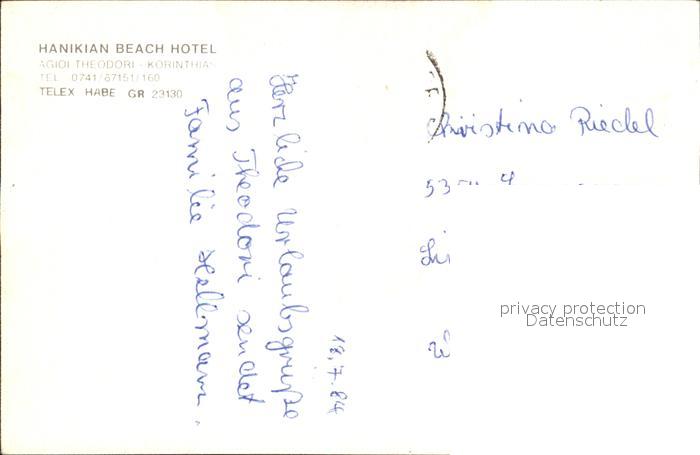 HANIKIAN BEACH HOTEL
AGIOI THEODORI - KORINTHIAS
TEL. 0741/67151/160
TELEX HABE GR 23130
18.7.84
Herzliche Urlaubsgrüße
aus Theodori sendet
Familie Hellmann.
Christina Riedel
53 4
privacy protection
Datenschutz